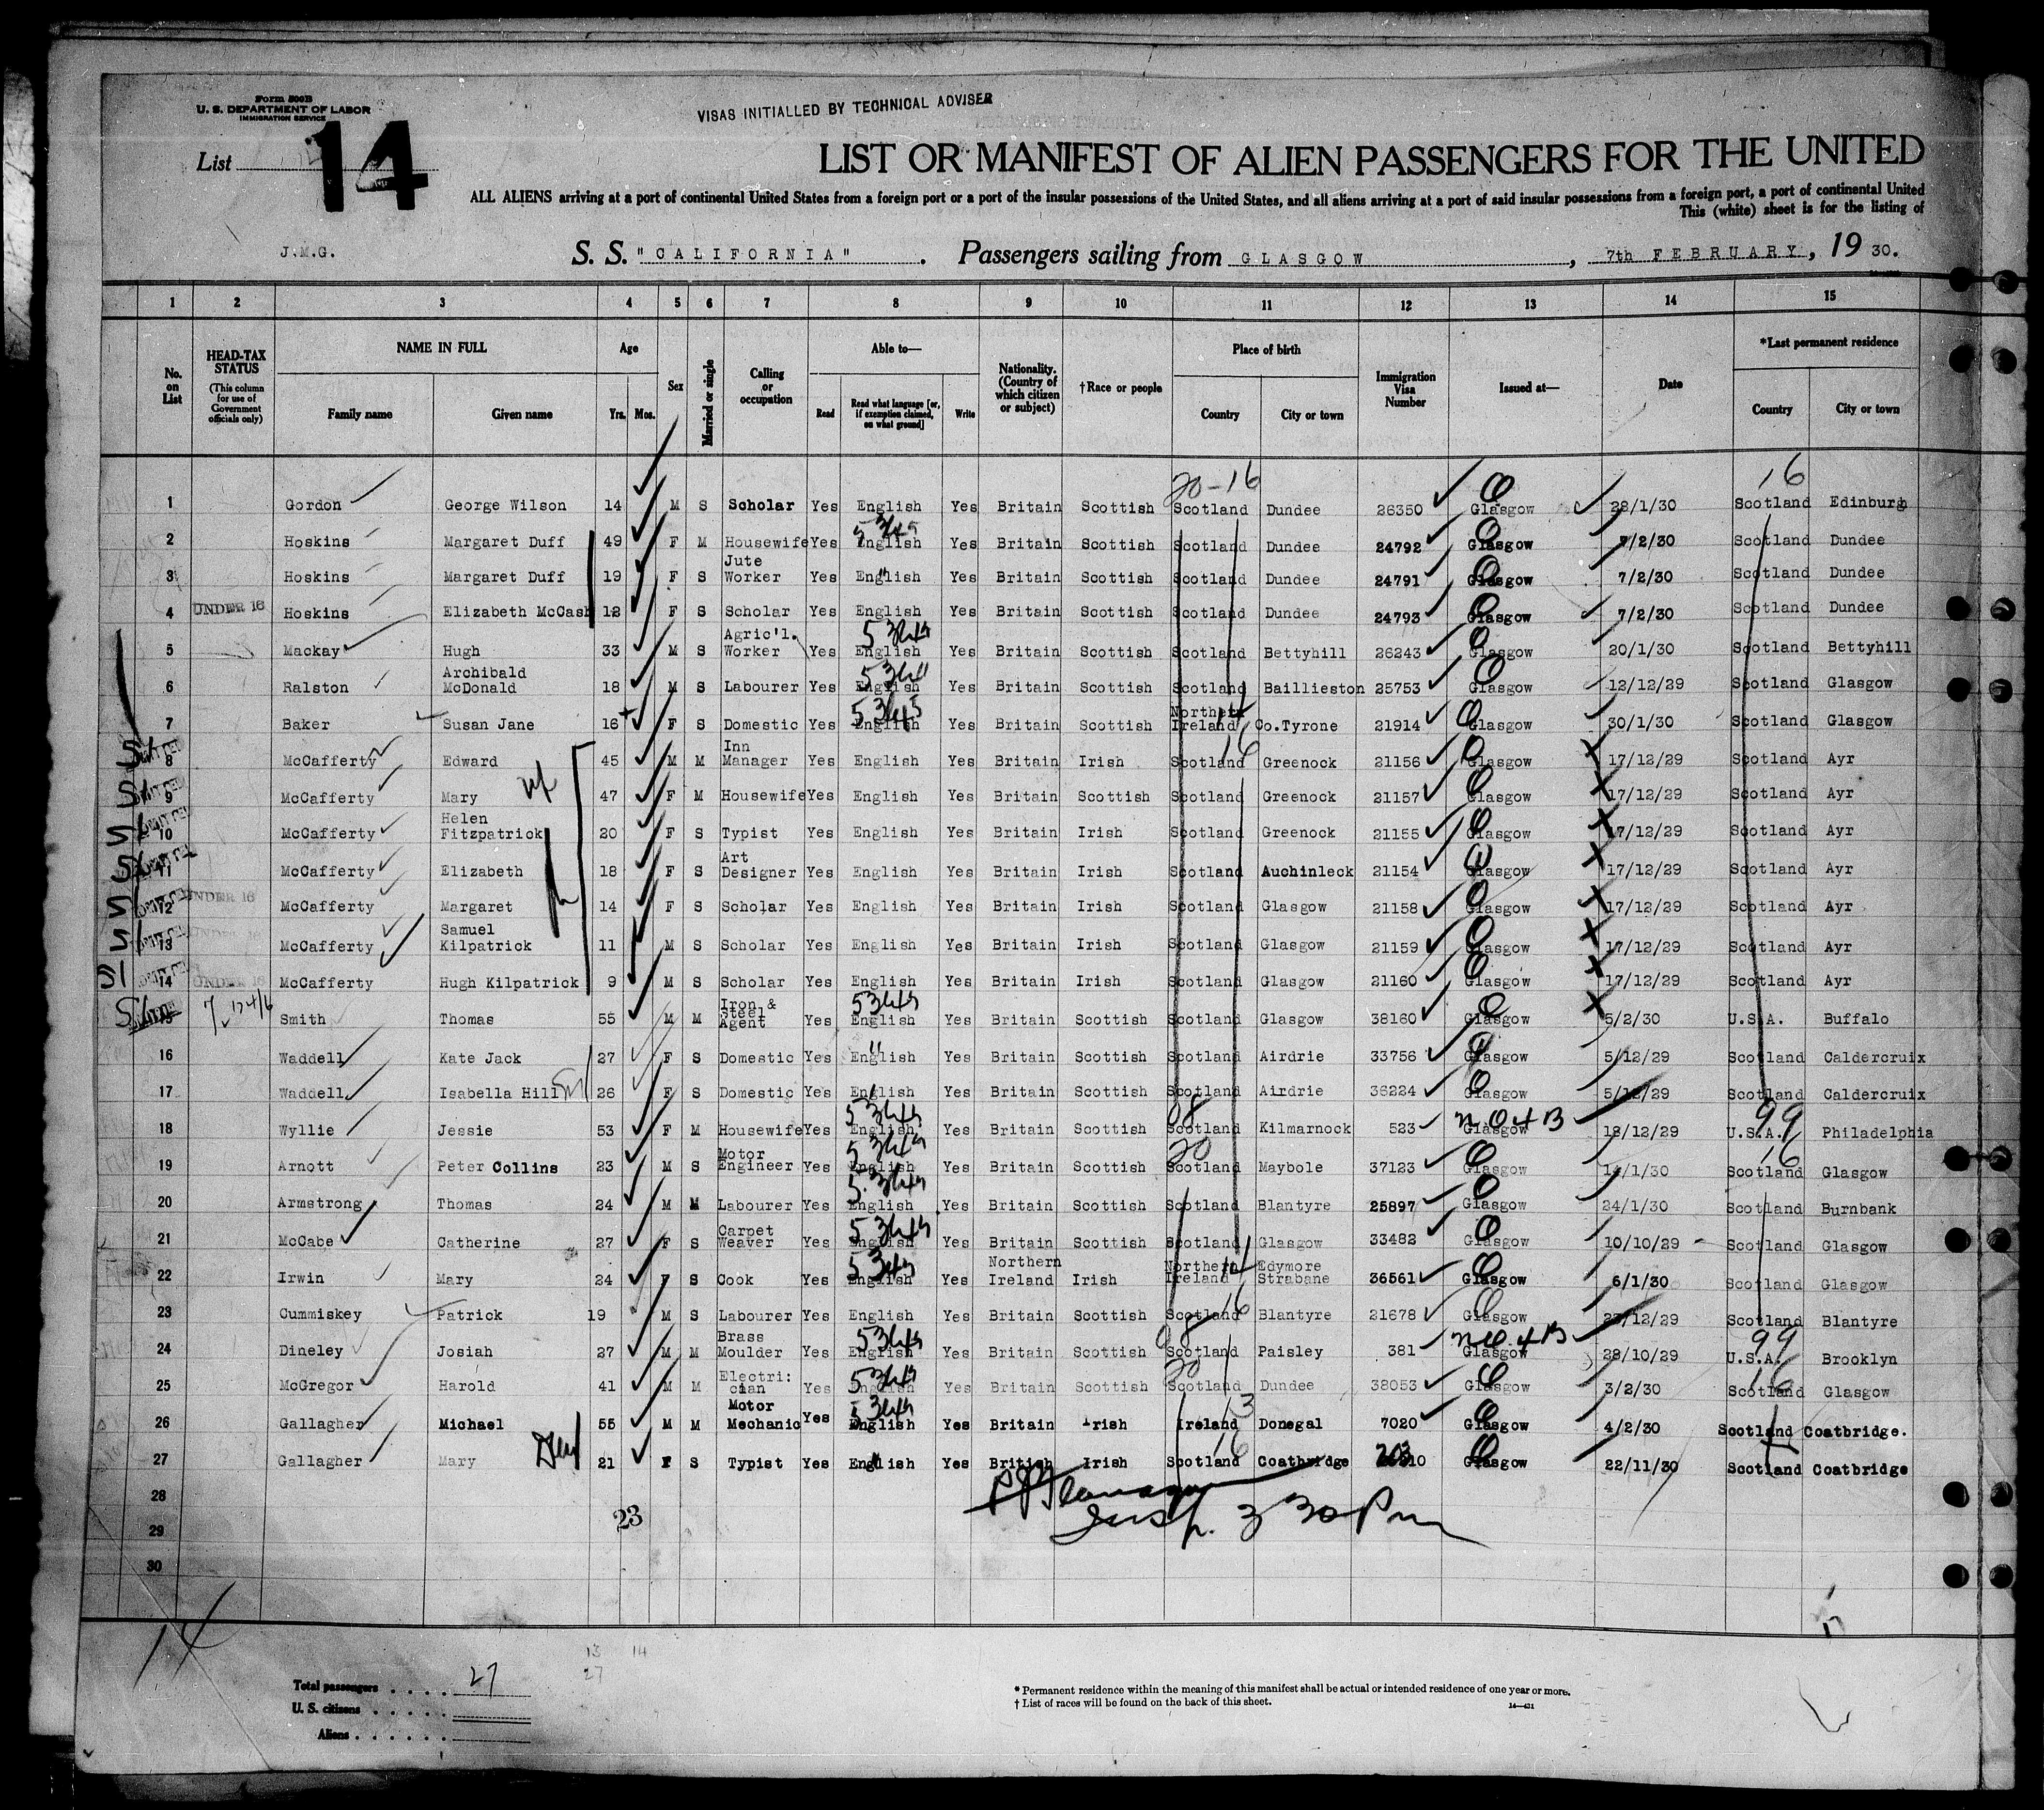 Form 500B
U. S. DEPARTMENT OF LABOR
IMMIGRATION SERVICE
VISAS INITIALLED BY TECHNICAL ADVISER
List 14
LIST OR MANIFEST OF ALIEN PASSENGERS FOR THE UNITED
ALL ALIENS arriving at a port of continental United States from a foreign port or a port of the insular possessions of the United States, and all aliens arriving at a port of said insular possessions from a foreign port, a port of continental United
This (white) sheet is for the listing of
J.M.G. S. S. "CALIFORNIA". Passengers sailing from GLASGOW, 7th FEBRUARY, 1930.
1 2 3 4 5 6 7 8 9 10 11 12 13 14 15
No. on List HEAD-TAX STATUS (This column for use of Government officials only) NAME IN FULL Family name Given name Age Yrs. Mos. Sex Married or single Calling or occupation Able to— Read Read what language [or, if exemption claimed, on what ground] Write Nationality. (Country of which citizen or subject) †Race or people Place of birth Country City or town Immigration Visa Number Issued at— Date *Last permanent residence Country City or town
20-16 16
1 Gordon George Wilson 14 M S Scholar Yes English Yes Britain Scottish Scotland Dundee 26350 Glasgow 28/1/30 Scotland Edinburgh
2 Hoskins Margaret Duff 49 F M Housewife Yes English Yes Britain Scottish Scotland Dundee 24792 Glasgow 7/2/30 Scotland Dundee
3 Hoskins Margaret Duff 19 F S Jute Worker Yes English Yes Britain Scottish Scotland Dundee 24791 Glasgow 7/2/30 Scotland Dundee
4 UNDER 16 Hoskins Elizabeth McCash 12 F S Scholar Yes English Yes Britain Scottish Scotland Dundee 24793 Glasgow 7/2/30 Scotland Dundee
5 Mackay Hugh 33 M S Agric'l. Worker Yes English Yes Britain Scottish Scotland Bettyhill 26243 Glasgow 20/1/30 Scotland Bettyhill
6 Ralston Archibald McDonald 18 M S Labourer Yes English Yes Britain Scottish Scotland Baillieston 25753 Glasgow 12/12/29 Scotland Glasgow
7 Baker Susan Jane 16 F S Domestic Yes English Yes Britain Scottish Northern Ireland Co.Tyrone 21914 Glasgow 30/1/30 Scotland Glasgow
SI 8 McCafferty Edward 45 M M Inn Manager Yes English Yes Britain Irish Scotland Greenock 21156 Glasgow 17/12/29 Scotland Ayr
SI 9 McCafferty Mary 47 F M Housewife Yes English Yes Britain Scottish Scotland Greenock 21157 Glasgow 17/12/29 Scotland Ayr
SI 10 McCafferty Helen Fitzpatrick 20 F S Typist Yes English Yes Britain Irish Scotland Greenock 21155 Glasgow 17/12/29 Scotland Ayr
SI 11 McCafferty Elizabeth 18 F S Art Designer Yes English Yes Britain Irish Scotland Auchinleck 21154 Glasgow 17/12/29 Scotland Ayr
SI 12 UNDER 16 McCafferty Margaret 14 F S Scholar Yes English Yes Britain Irish Scotland Glasgow 21158 Glasgow 17/12/29 Scotland Ayr
SI 13 UNDER 16 McCafferty Samuel Kilpatrick 11 M S Scholar Yes English Yes Britain Irish Scotland Glasgow 21159 Glasgow 17/12/29 Scotland Ayr
SI 14 UNDER 16 McCafferty Hugh Kilpatrick 9 M S Scholar Yes English Yes Britain Irish Scotland Glasgow 21160 Glasgow 17/12/29 Scotland Ayr
SI 15 Smith Thomas 55 M M Iron & Steel Agent Yes English Yes Britain Scottish Scotland Glasgow 38160 Glasgow 5/2/30 U.S.A. Buffalo
16 Waddell Kate Jack 27 F S Domestic Yes English Yes Britain Scottish Scotland Airdrie 33756 Glasgow 5/12/29 Scotland Caldercruix
17 Waddell Isabella Hill 26 F S Domestic Yes English Yes Britain Scottish Scotland Airdrie 36224 Glasgow 5/12/29 Scotland Caldercruix
18 Wyllie Jessie 53 F M Housewife Yes English Yes Britain Scottish Scotland Kilmarnock 523 Glasgow 18/12/29 U.S.A. Philadelphia
19 Arnott Peter Collins 23 M S Motor Engineer Yes English Yes Britain Scottish Scotland Maybole 37123 Glasgow 14/1/30 Scotland Glasgow
20 Armstrong Thomas 24 M M Labourer Yes English Yes Britain Scottish Scotland Blantyre 25897 Glasgow 24/1/30 Scotland Burnbank
21 McCabe Catherine 27 F S Carpet Weaver Yes English Yes Britain Scottish Scotland Glasgow 33482 Glasgow 10/10/29 Scotland Glasgow
22 Irwin Mary 24 F S Cook Yes English Yes Northern Ireland Irish Northern Ireland Edymore Strabane 36561 Glasgow 6/1/30 Scotland Glasgow
23 Cummiskey Patrick 19 M S Labourer Yes English Yes Britain Scottish Scotland Blantyre 21678 Glasgow 23/12/29 Scotland Blantyre
24 Dineley Josiah 27 M M Brass Moulder Yes English Yes Britain Scottish Scotland Paisley 381 Glasgow 28/10/29 U.S.A. Brooklyn
25 McGregor Harold 41 M M Electrician Yes English Yes Britain Scottish Scotland Dundee 38053 Glasgow 3/2/30 Scotland Glasgow
26 Gallagher Michael 55 M M Motor Mechanic Yes English Yes Britain Irish Ireland Donegal 7020 Glasgow 4/2/30 Scotland Coatbridge.
27 Gallagher Mary 21 F S Typist Yes English Yes British Irish Scotland Coatbridge Glasgow 22/11/30 Scotland Coatbridge
28
29 23 Insp. 3 30 Pm
30
14
13 14
Total passengers . . . . 27 27
U. S. citizens . . . . .
Aliens . . . . . .
* Permanent residence within the meaning of this manifest shall be actual or intended residence of one year or more.
† List of races will be found on the back of this sheet.
14—431